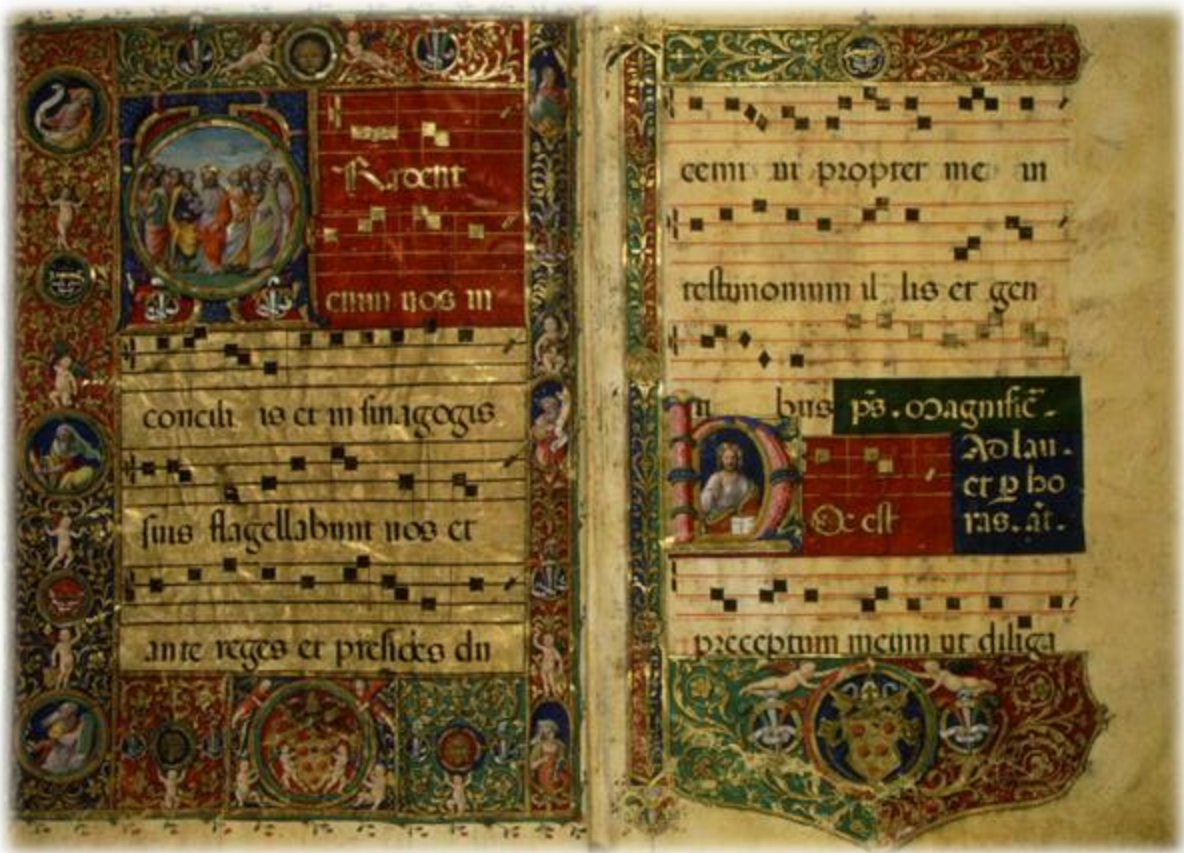 Radent
enim uos in
concili is et in sinagogis
suis flagellabunt uos et
ante reges et presides du
cemi ni propter me in
testimonium il lis et gen
ti bus ps. Magnific̄.
Ad lau.
et ꝑ ho
Oc est ras. añ.
preceptum meum ut diliga